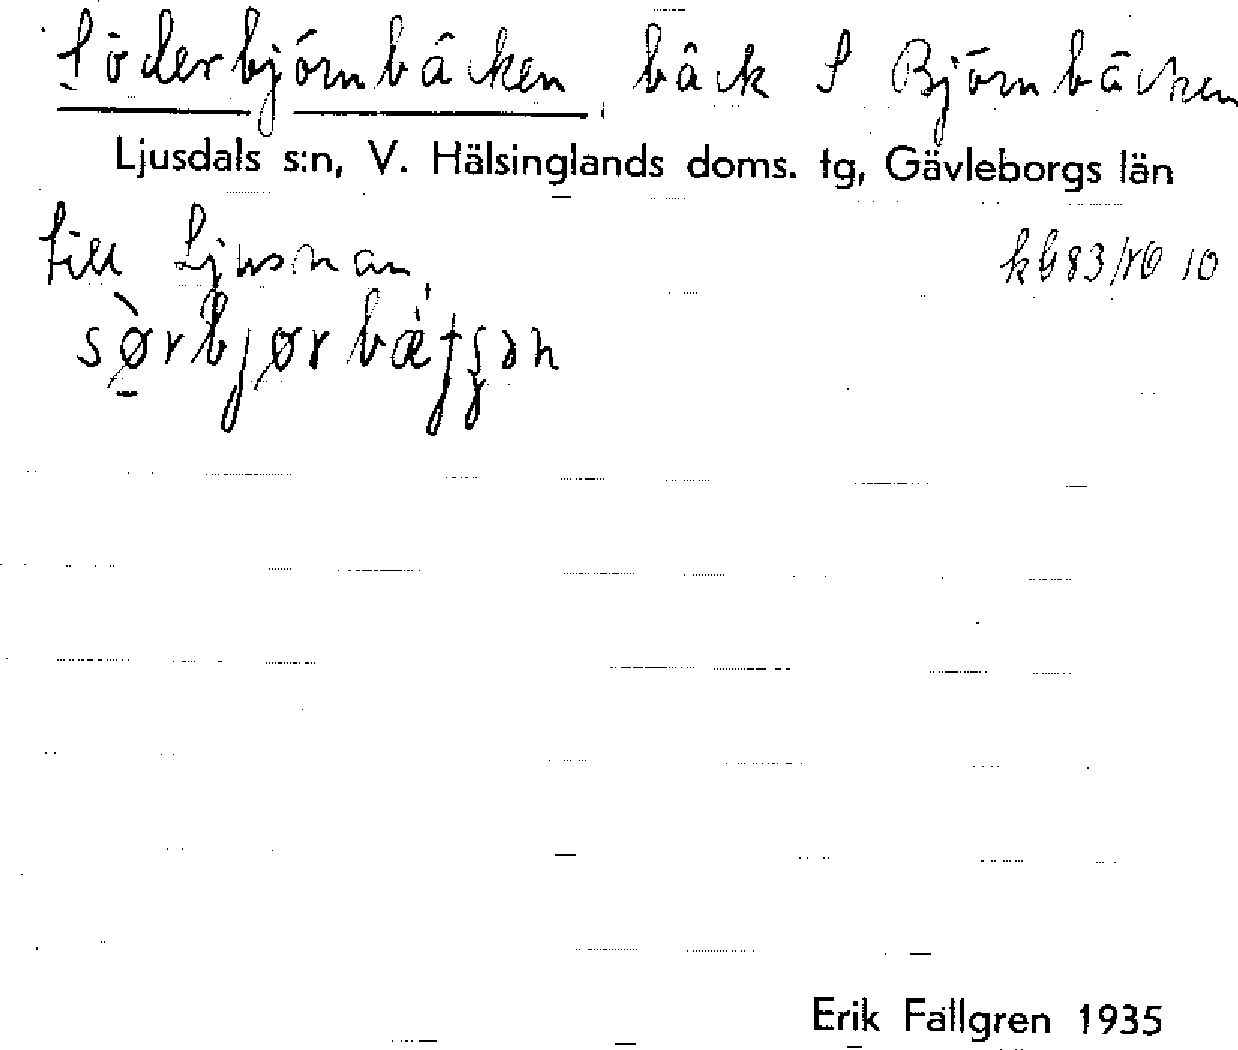 Söderbjörnbäcken, bäck S Björnbäcken
Ljusdals s:n, V. Hälsinglands doms. tg, Gävleborgs län
till Ljusnan.
sø̀rbjørbæ̀tʂən
Erik Fällgren 1935